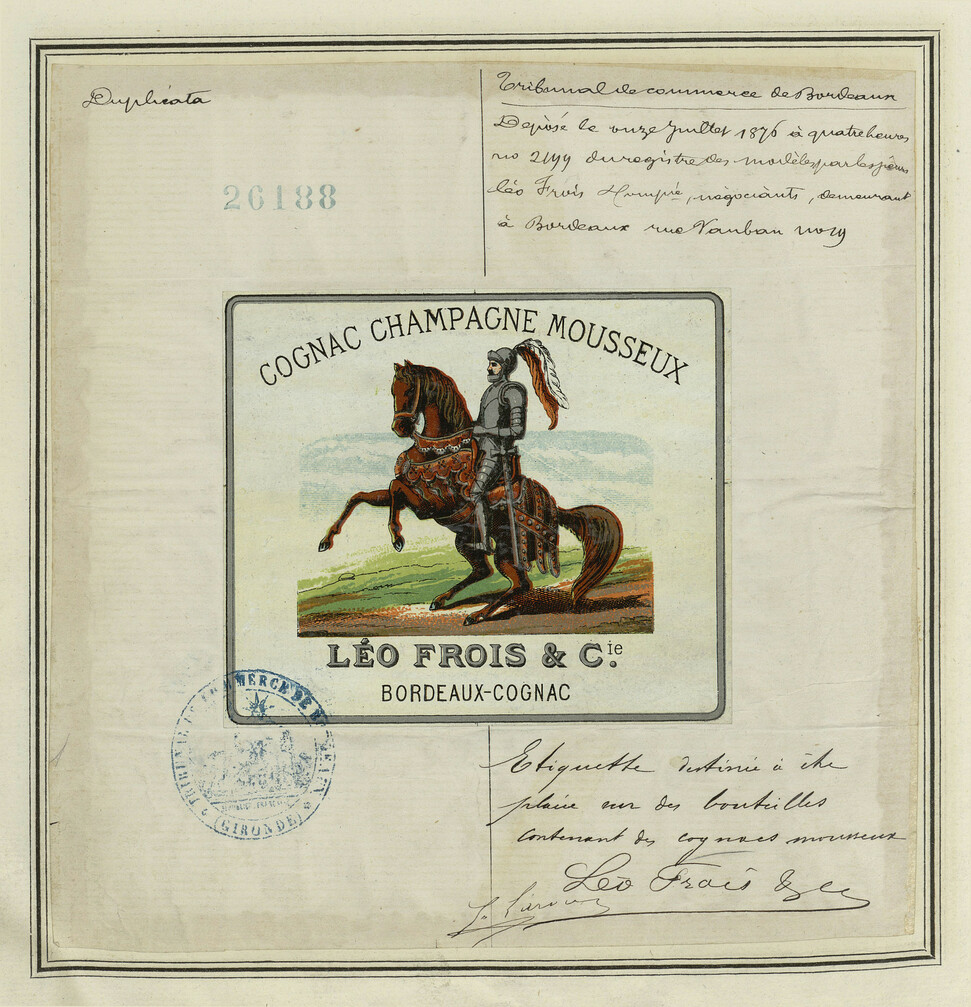 Duplicata
26188
Tribunal de commerce de Bordeaux
Déposé le onze Juillet 1876 à quatre heures
no 2199 du registre des modèles par les sieurs
Léo Frois & Compie, négociants, demeurant
à Bordeaux rue Vauban no 19
COGNAC CHAMPAGNE MOUSSEUX
LÉO FROIS & Cie.
BORDEAUX-COGNAC
TRIBUNAL DE COMMERCE DE BORDEAUX
(GIRONDE)
Etiquette destinée à être
placée sur des bouteilles
contenant des cognacs mousseux
Léo Frois & Cie